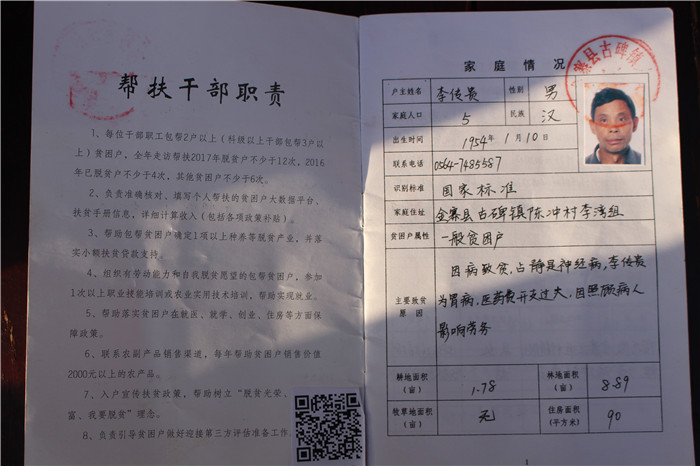 帮扶干部职责
1、每位干部职工包帮2户以上（科级以上干部包帮3户以
上）贫困户，全年走访帮扶2017年脱贫户不少于12次，2016
年已脱贫户不少于4次，其他贫困户不少于6次。
2、负责准确核对、填写个人帮扶的贫困户大数据平台、
扶贫手册信息，详细计算收入（包括各项政策补贴）。
3、帮助包帮贫困户确定1项以上种养等脱贫产业，并落
实小额扶贫贷款支持。
4、组织有劳动能力和自我脱贫愿望的包帮贫困户，参加
1次以上职业技能培训或农业实用技术培训，帮助实现就业。
5、帮助落实贫困户在就医、就学、创业、住房等方面保
障政策。
6、联系农副产品销售渠道，每年帮助贫困户销售价值
2000元以上的农产品。
7、入户宣传扶贫政策，帮助树立“脱贫光荣、
富、我要脱贫”理念。
8、负责引导贫困户做好迎接第三方评估准备工作
家庭情况
寨县古碑镇
户主姓名 李传贵 性别 男
家庭人口 5 民族 汉
出生时间 1954年1月10日
联系电话 0564-7485587
识别标准 国家标准
家庭住址 金寨县古碑镇陈冲村李湾组
贫困户属性 一般贫困户
主要致贫
原因
因病致贫，占静是神经病，李传贵
为胃病，医药费开支过大，因照顾病人
影响劳务
耕地面积
（亩） 1.78 林地面积
（亩） 8.89
牧草地面积
（亩） 无 住房面积
（平方米） 90